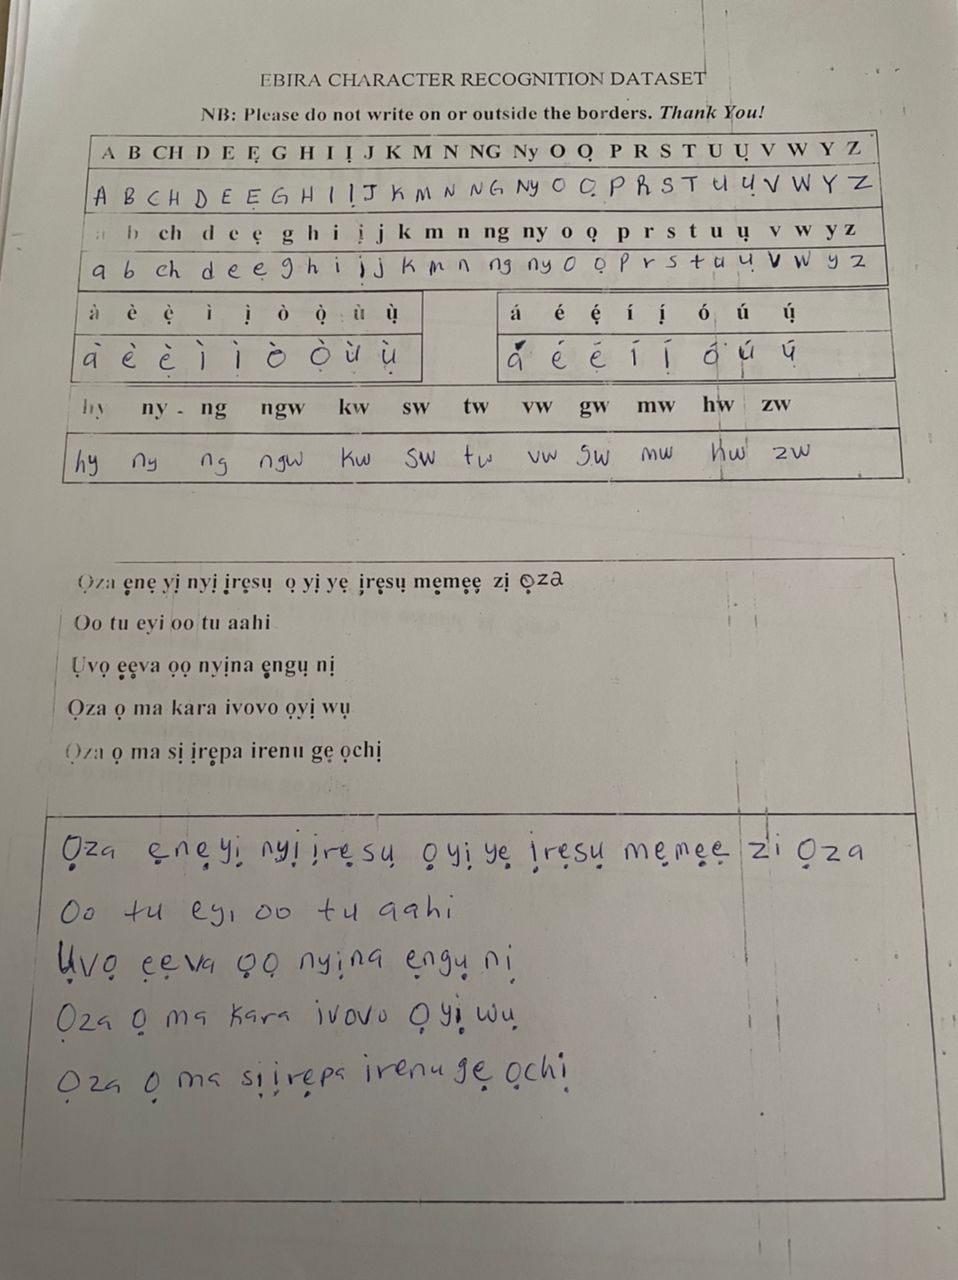 EBIRA CHARACTER RECOGNITION DATASET
NB: Please do not write on or outside the borders. Thank You!
A B CH D E Ẹ G H I Ị J K M N NG Ny O Ọ P R S T U Ụ V W Y Z
A B CH D E Ẹ G H I Ị J K M N NG Ny O Ọ P R S T U Ụ V W Y Z
a b ch d e ẹ g h i ị j k m n ng ny o ọ p r s t u ụ v w y z
a b ch d e ẹ g h i ị j k m n ng ny o ọ p r s t u ụ v w y z
à è ẹ̀ ì ị̀ ò ọ̀ ù ụ̀ á é ẹ́ í ị́ ó ú ụ́
à è ẹ̀ ì ị̀ ò ọ̀ ù ụ̀ á é ẹ́ í ị́ ó ú ụ́
hy ny - ng ngw kw sw tw vw gw mw hw zw
hy ny ng ngw kw sw tw vw gw mw hw zw
Ọza ẹnẹ yị nyị ịrẹsụ ọ yị yẹ ịrẹsụ mẹmẹẹ zị ọza
Oo tu eyi oo tu aahi
Ụvọ ẹẹva ọọ nyịna ẹngụ nị
Ọza ọ ma kara ivovo ọyị wụ
Ọza ọ ma sị ịrẹpa irenu gẹ ọchị
Ọza ẹnẹyị nyị ịrẹsụ ọ yị yẹ ịrẹsụ mẹmẹẹ zi ọza
Oo tu eyi oo tu aahi
Ụvọ ẹẹva ọọ nyịna ẹngụ nị
Ọza ọ ma kara ivovo ọ yị wụ
Ọza ọ ma sị ịrẹpa irenu gẹ ọchị